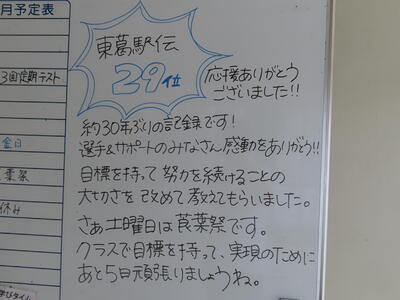 月予定表
3回定期テスト
金日
葉祭
休み
学びタイム
東葛駅伝
29位
応援ありがとう
ございました!!
約30年ぶりの記録です!
選手&サポートのみなさん感動をありがとう!!
目標を持って努力を続けることの
大切さを改めて教えてもらいました。
さぁ土曜日は莨葉祭です。
クラスで目標を持って、実現のために
あと5日頑張りましょうね。